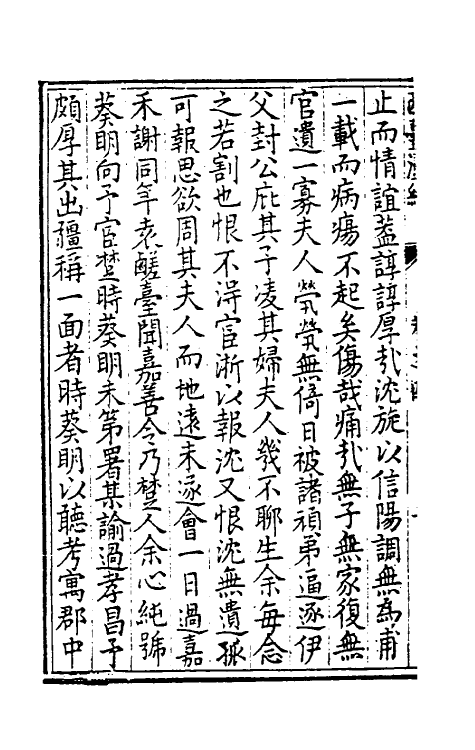 止而情誼蓋諄諄厚㢤沈旋以信陽調無為甫
一載而病瘍不起矣傷哉痛㢤無子無家復無
官遺一寡夫人煢煢無倚日被諸頑弟逼逐伊
父封公庇其子凌其婦夫人幾不聊生余每念
之若割也恨不得宦浙以報沈又恨沈無遺孤
可報思欲周其夫人而地遠未遂會一日過嘉
禾謝同年袁鹺臺聞嘉善令乃楚人余心純號
葵明向予宦楚時葵明未第署某諭過孝昌予
頗厚其出疆稱一面者時葵明以聽考寓郡中